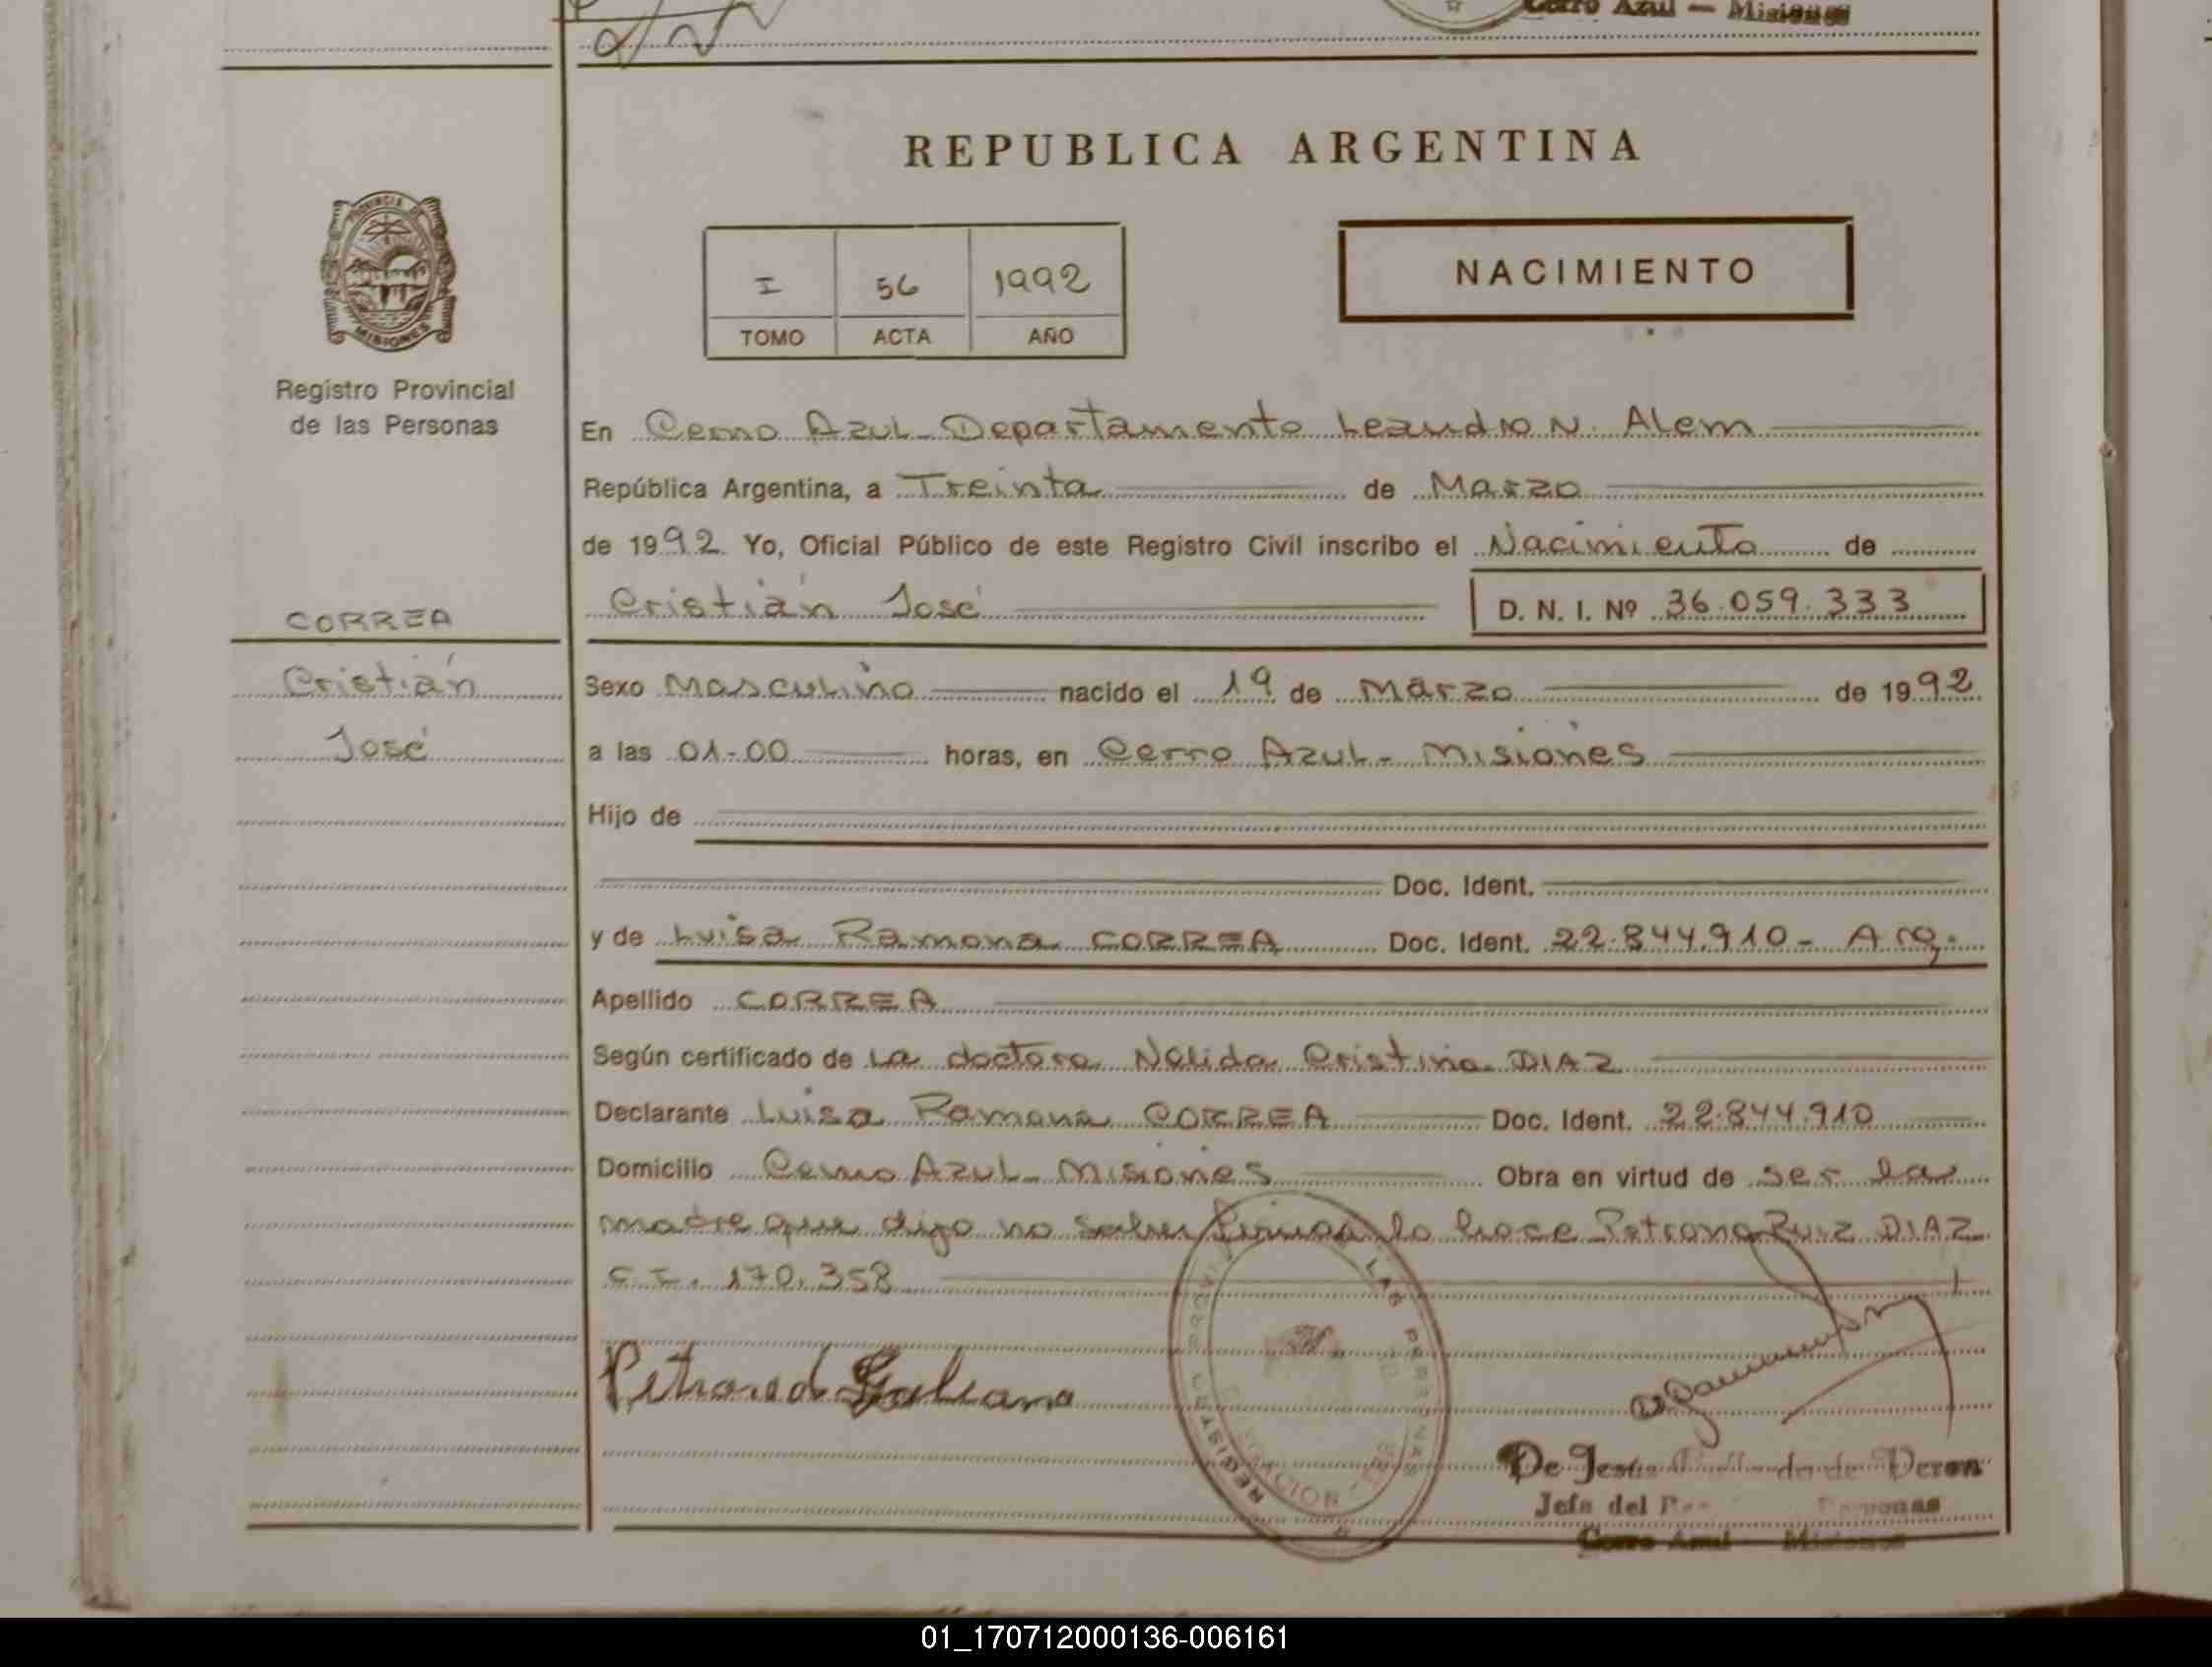 Cerro Azul — Misiones
REPUBLICA ARGENTINA
PROVINCIA DE
MISIONES
Registro Provincial
de las Personas
I 56 1992
TOMO ACTA AÑO
NACIMIENTO
En Cerro Azul - Departamento Leandro N. Alem
República Argentina, a Treinta de Marzo
de 1992 Yo, Oficial Público de este Registro Civil inscribo el Nacimiento de
Cristián José
D. N. I. Nº 36.059.333
CORREA
Cristián
José
Sexo Masculino nacido el 19 de Marzo de 1992
a las 01-00 horas, en Cerro Azul - Misiones
Hijo de
Doc. Ident.
y de Luisa Ramona CORREA Doc. Ident. 22.844.910 - Arg.
Apellido CORREA
Según certificado de La doctora Nelida Cristina DIAZ
Declarante Luisa Ramona CORREA Doc. Ident. 22.844.910
Domicilio Cerro Azul - Misiones Obra en virtud de ser la
madre que dijo no saber firmar lo hace Petrona Ruiz DIAZ
C.I. 170.358
Petrona d Galeano
REGISTRO LAS PERSONAS
De Jesús de Veron
Jefa del Personas
Cerro Azul Misiones
01_170712000136-006161